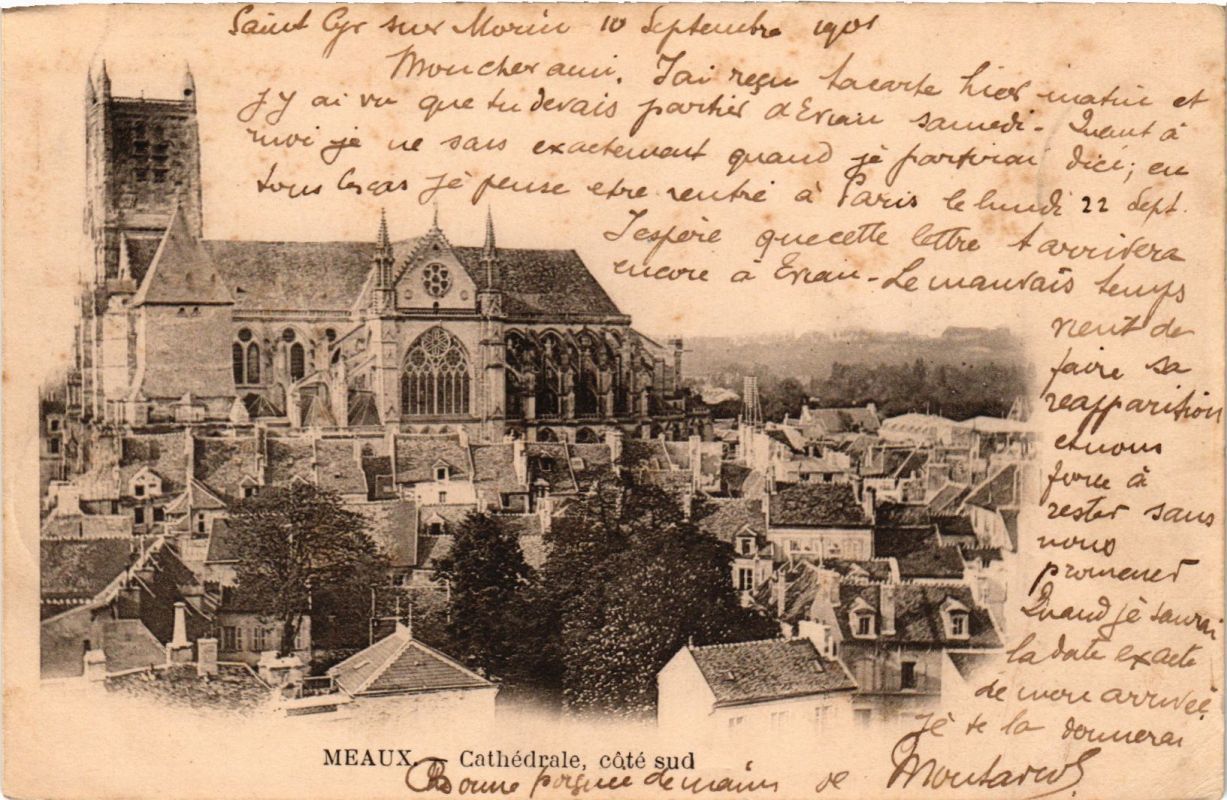 Saint Cyr sur Morin 10 Septembre 1901
Mon cher ami. J'ai reçu ta carte hier matin et
j'y ai vu que tu devais partir d'Evian samedi - Quant à
moi je ne sais exactement quand je partirai d'ici; en
tous les cas je pense etre rentré à Paris le lundi 22 Sept.
J'espère que cette lettre t'arrivera
encore à Evian - Le mauvais temps
vient de
faire sa
réapparition
et nous
force à
rester sans
nous
promener
Quand je saurai
la date exacte
de mon arrivée
je te la donnerai
MEAUX. — Cathédrale, côté sud
Bonne poignée de mains de